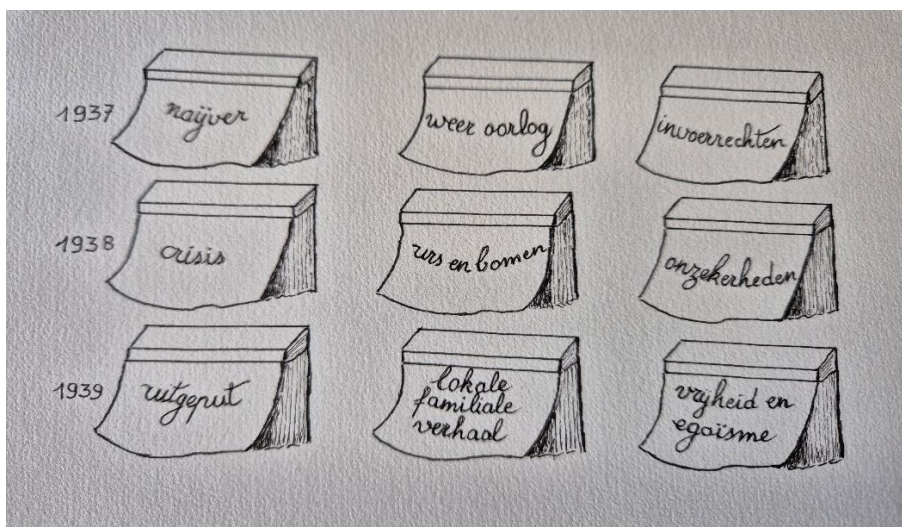 1937 naijver weer oorlog invoerrechten
1938 crisis urs en bomen onzekerheden
1939 uitgeput lokale
familiale
verhaal vrijheid en
egoïsme